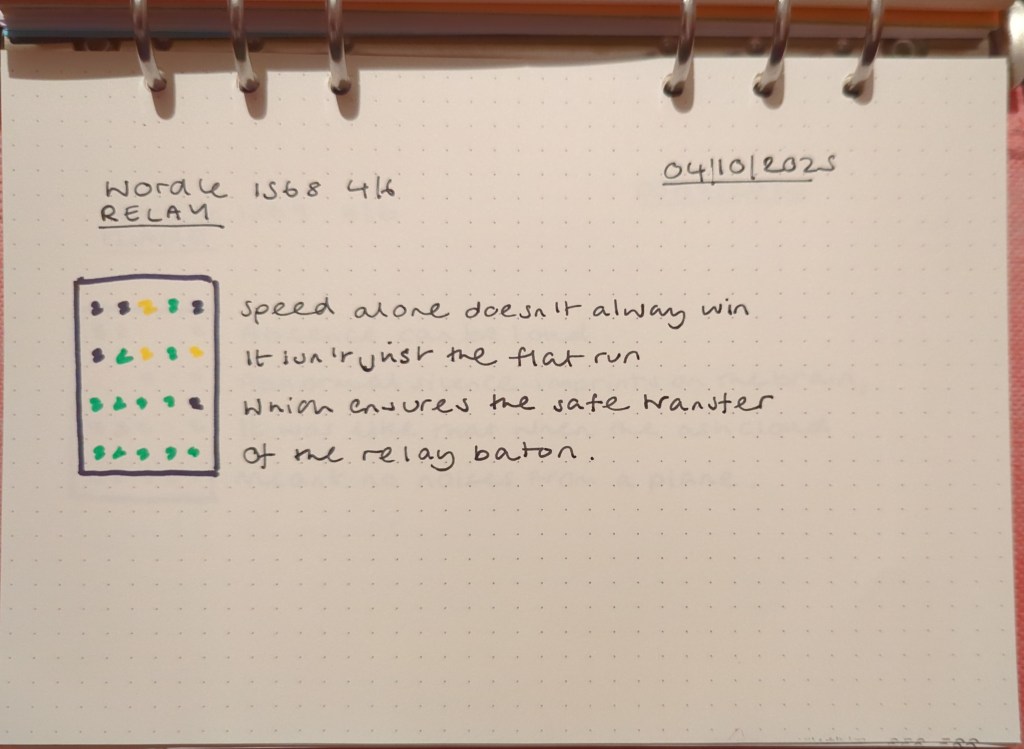 Wordle 1568 4/6
04/10/2025
RELAY
Speed alone doesn't alway win
It isn't just the flat run
Which ensures the safe transfer
Of the relay baton.